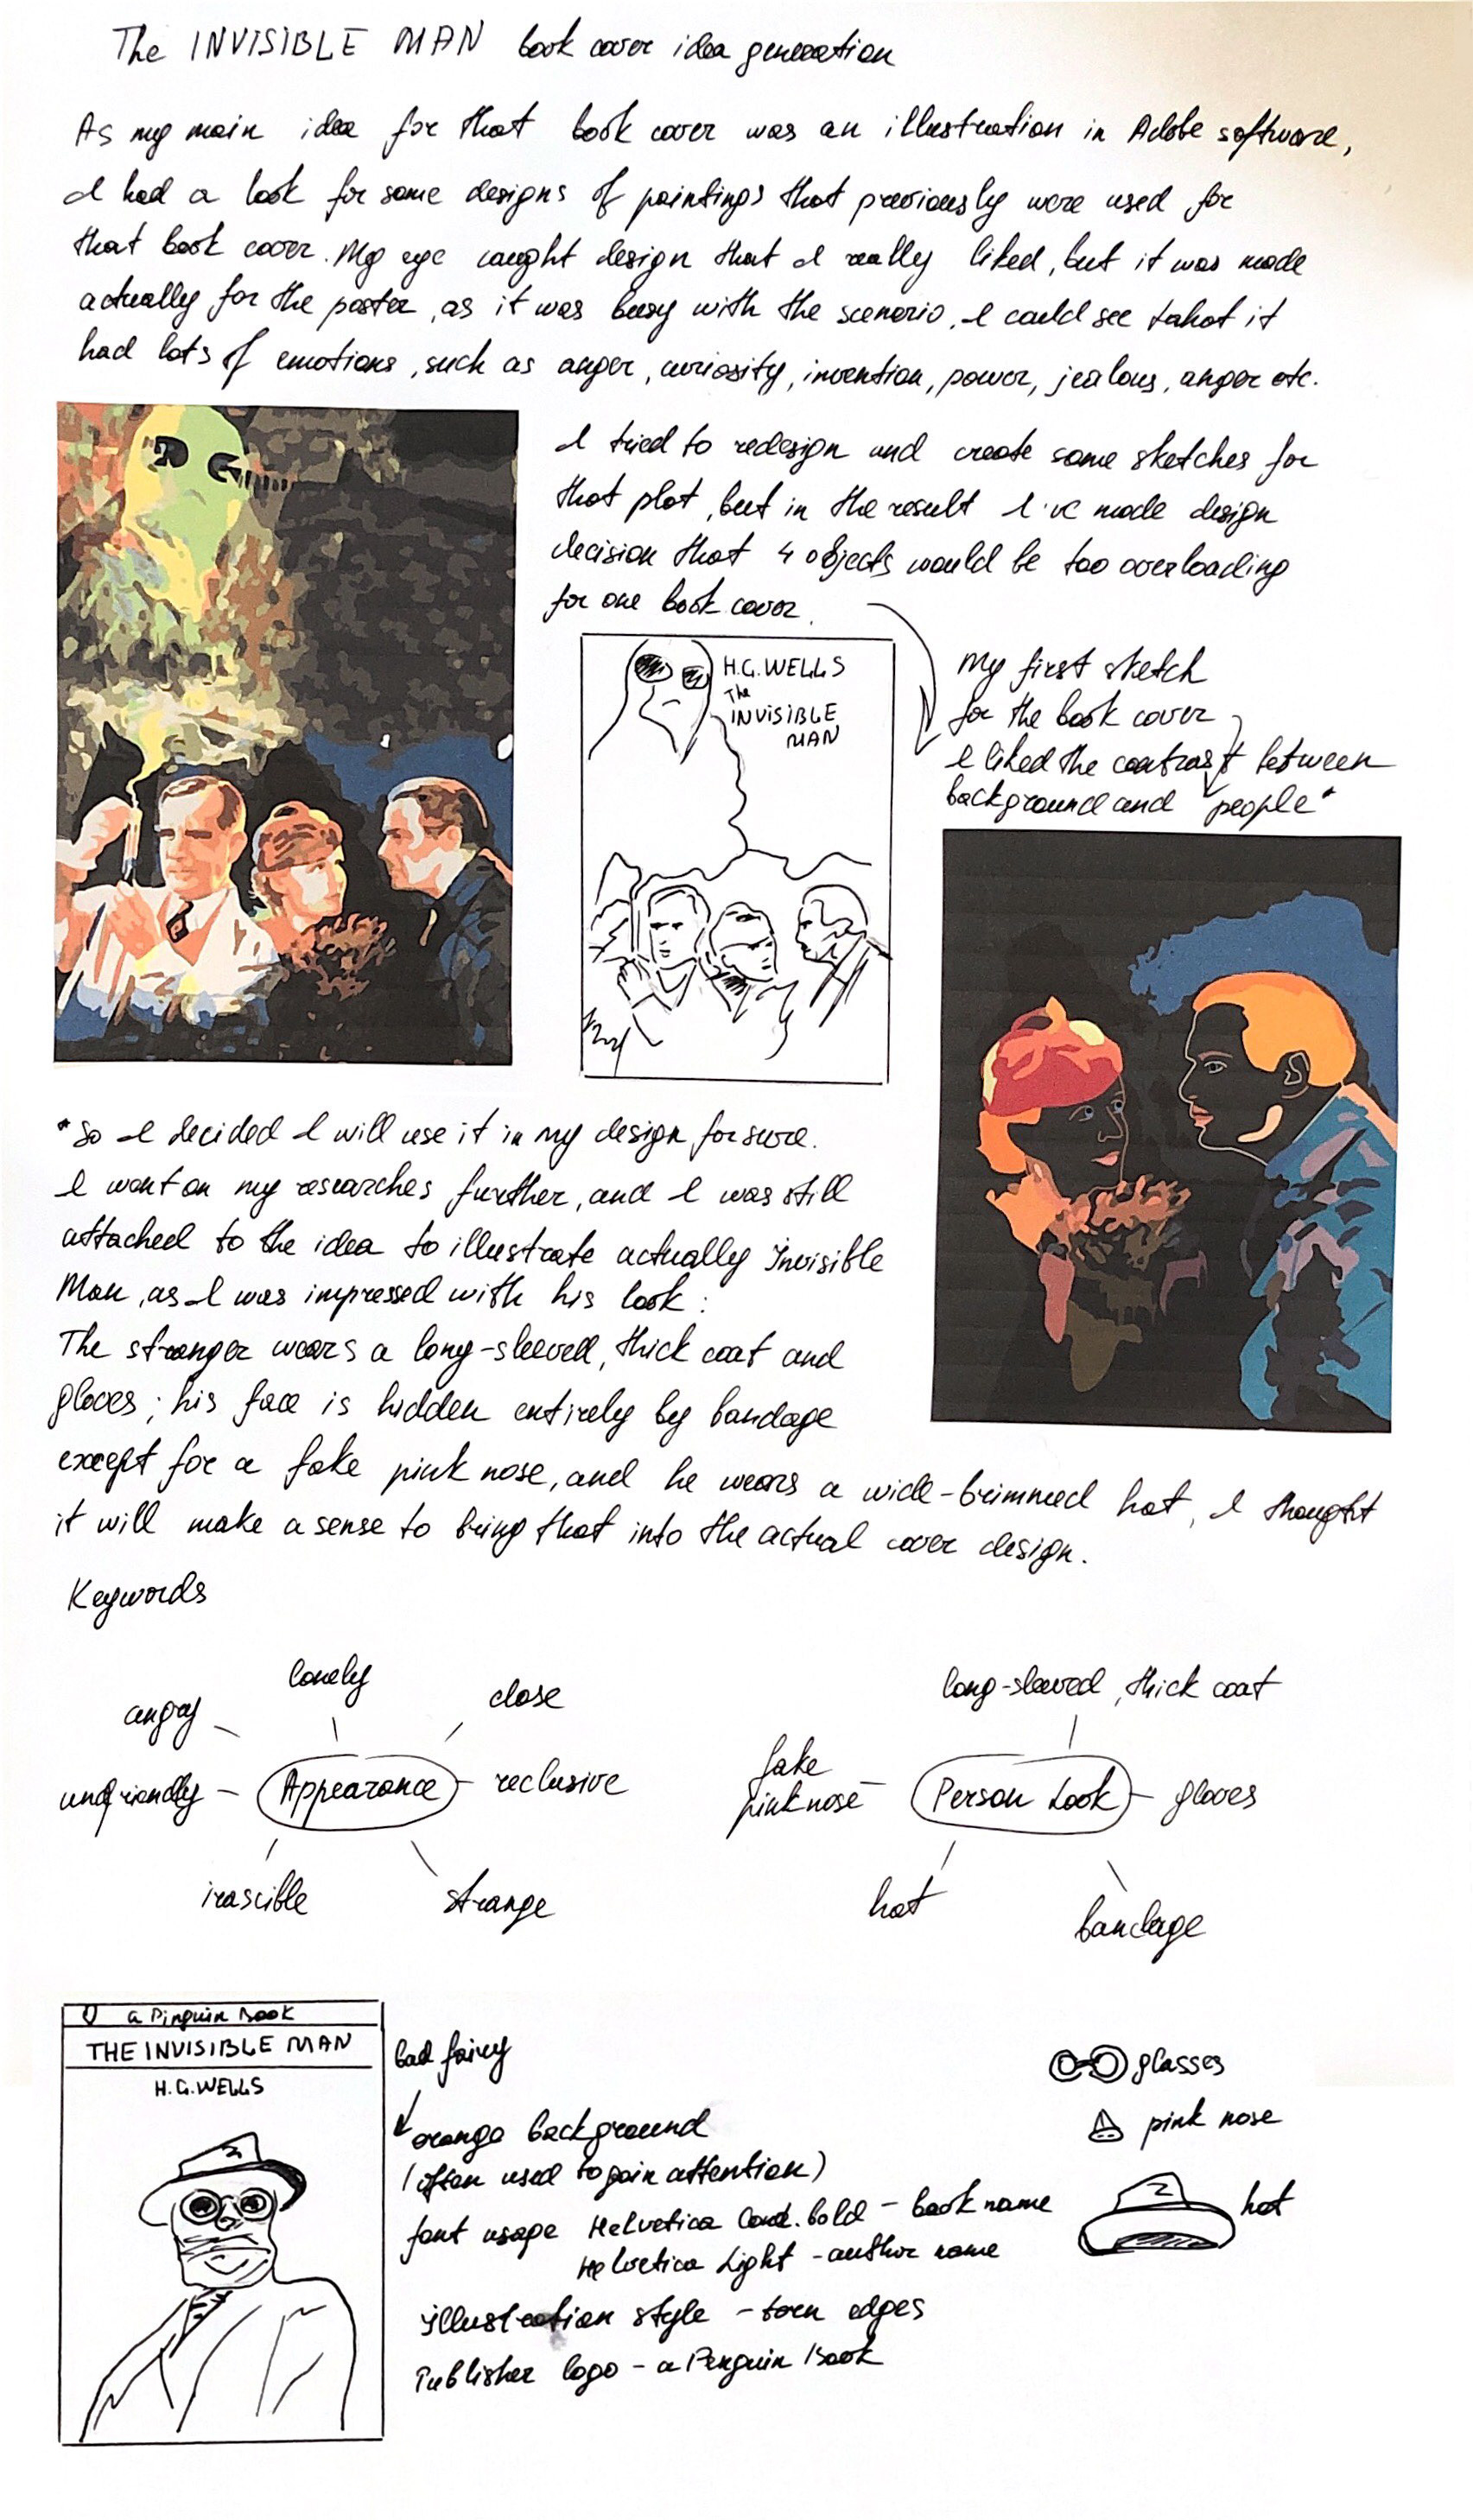 The INVISIBLE MAN book cover idea generation
As my main idea for that book cover was an illustration in Adobe software,
I had a look for some designs of paintings that previously were used for
that book cover. My eye caught design that I really liked, but it was made
actually for the poster, as it was busy with the scenario. I could see tahot it
had lots of emotions, such as anger, curiosity, invention, power, jealous, anger etc.
I tried to redesign and create some sketches for
that plot, but in the result I've made design
decision that 4 objects would be too overloading
for one book cover.
H.G. WELLS
The
INVISIBLE
MAN
My first sketch
for the book cover
I liked the contrast between
background and "people"
*So I decided I will use it in my design for sure.
I went on my researches further, and I was still
attached to the idea to illustrate actually Invisible
Man, as I was impressed with his look:
The stranger wears a long-sleeved, thick coat and
gloves; his face is hidden entirely by bandage
except for a fake pink nose, and he wears a wide-brimmed hat, I thought
it will make a sense to bring that into the actual cover design.
Keywords
lonely
angry
close
unfriendly
Appearance
reclusive
irascible
strange
long-sleeved, thick coat
fake
pink nose
Person Look
gloves
hat
bandage
a Pinguin Book
THE INVISIBLE MAN
H.G. WELLS
bad fairy
orange background
(often used to gain attention)
font usage Helvetica Cond. bold - book name
Helvetica Light - author name
illustration style - torn edges
Publisher logo - a Penguin Book
glasses
pink nose
hat